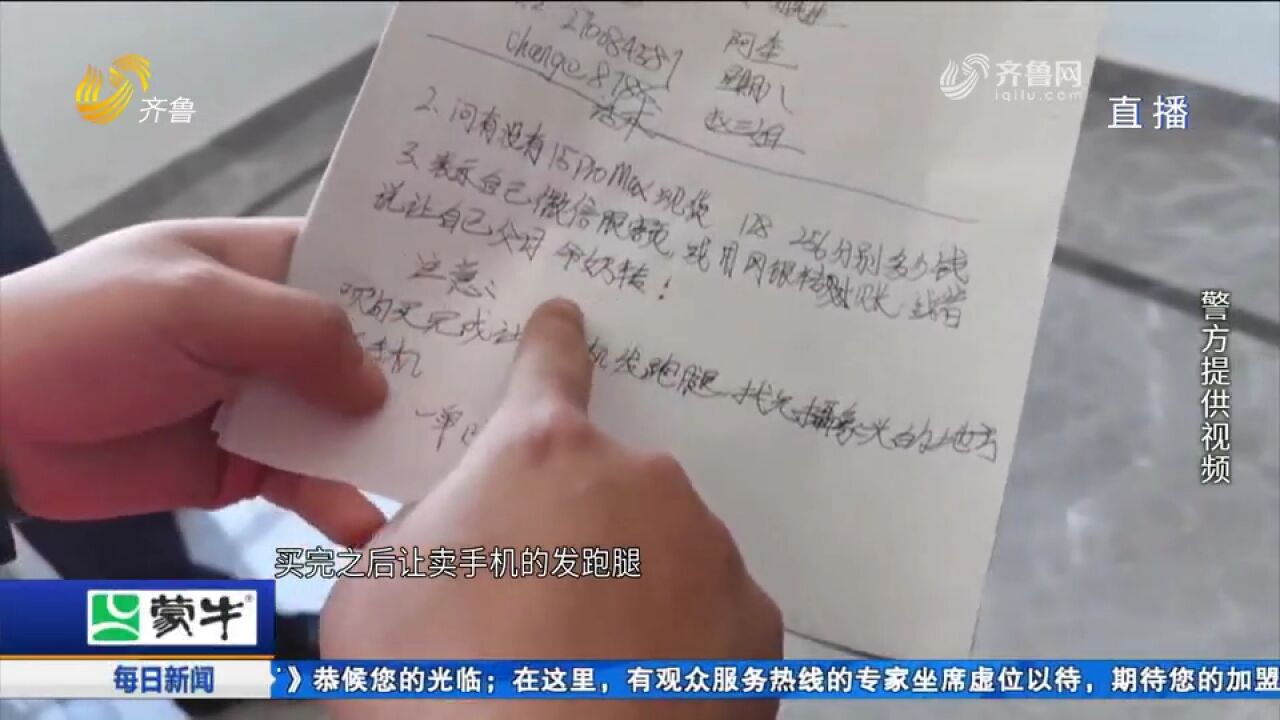 齐鲁
齐鲁网
iqilu.com
直播
阿奎
270084587
change 878
星期八
赵三姐
2、问有没有15 Pro Max现货 128 256分别多少钱
3、表示自己微信限额,或用网银转账
说让自己公司
注意:
发跑腿 找无摄像头的地方
手机
一单
警方提供视频
买完之后让卖手机的发跑腿
蒙牛
每日新闻
》恭候您的光临;在这里,有观众服务热线的专家坐席虚位以待,期待您的加盟